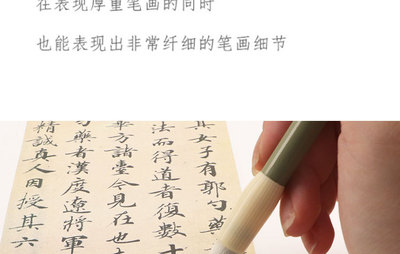 在表现厚重笔画的同时
也能表现出非常纤细的笔画细节
其女子有郭勺藥
法而得道者復數十
華方諸臺今見在也
勺藥者漢度遼將軍
精誠真人因授其六